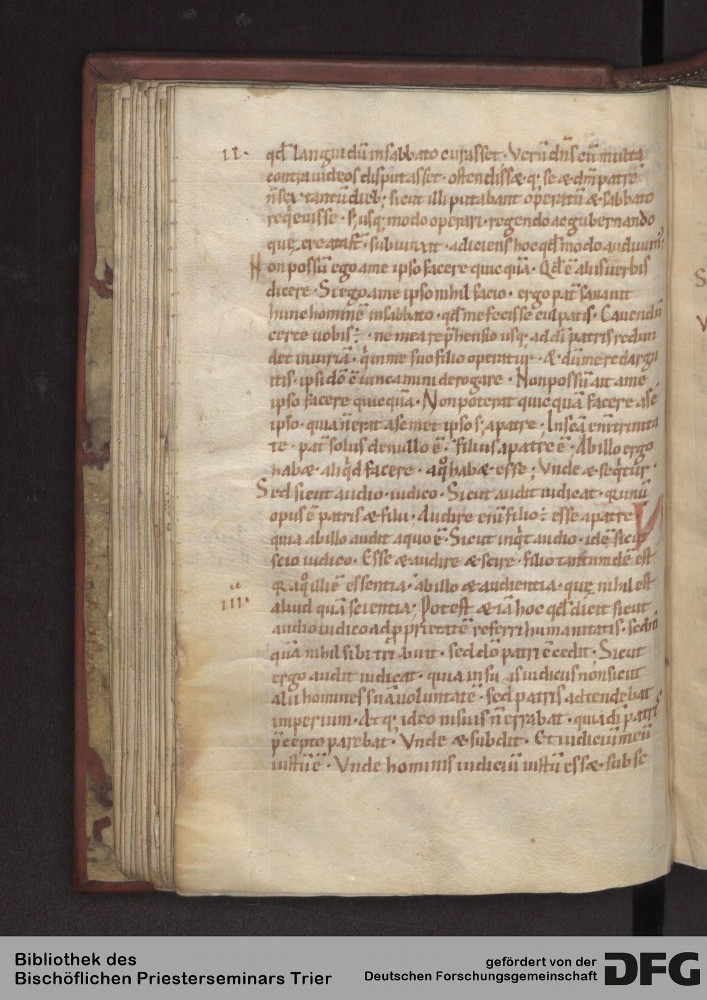 II. qđ languidū insabbato curasset. Verū dn̄s cū multa
contra iudeos disputasset. ostendissæ q; se & dm̄ patrē
n̄ sex tantū dieb; sicut illi putabant operatū & sabbato
reqeuisse. s; usq; modo operari. regendo ac gubernando
quę creauit. subiunxit. adiciens hoc qđ modo audiuim;
Non possū ego a me ipso facere quicquā. Qđ ē aliis uerbis
dicere. Si ego a me ipso nihil facio. ergo pat̄ sanauit
hunc hominē insabbato. qđ me fecisse culpatis. Cauendū
certe uobis. ne mea rephensio usq; ad dī patris redun
det iniuriā. q̇ in me suo filio operatur. & dū me redargu
itis. ipsi dō ē iuncamini derogare. Non possū aūt a me
ipso facere quicquā. Non poterat quicquā facere a se
ipso. quia n̄ erat a semet ipso s; a patre. In scā enī trinita
te. pat̄ solus de nullo ē. filius a patre ē. Ab illo ergo
habæ. aliqđ facere. a quo habæ. esse; Vnde & seqtur.
Sed sicut audio. iudico. Sicut audit iudicat. quia unū
opus ē patris & filii. Audire enī filio: esse a patre
quia ab illo audit a quo ē. Sicut inqt audio. idē sicut
scio iudico. Esse & audire & scire. filio tantum dē est
Q a quo illi ē essentia. ab illo & audientia. quę nihil est
IIII. aliud quā scientia. Potest & iā hoc qđ dicit sicut
audio iudico ad pprietatē referri humanitatis. sed n̄
quā nihil sibi tribuit. sed dō patri ē cedit. Sicut
ergo audit iudicat. quia in suis iudiciis non sicut
alii homines suā voluntatē. sed patris adtendebat
imperium. At q; ideo in suis n̄ errabat. quia dī patris
pcepto parebat. Vnde & subdit. Et iudiciū meū
iustū ē. Vnde hominis iudiciū iustū essæ. sub se
Bibliothek des
Bischöflichen Priesterseminars Trier
gefördert von der
Deutschen Forschungsgemeinschaft
DFG